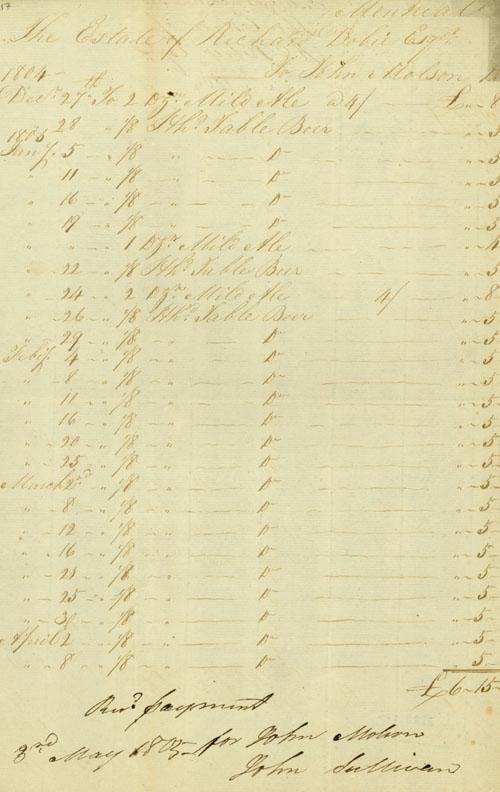 17
The Estate of Richard Dobie Esqr.
1804 To John Molson
Decr. 27th To 2 Dzn. Mild Ale a 4/ £ " - 8
" 28 - " 1/8 Hhd. Table Beer " - 5
1805
Jany. 5 - " 1/8 " Do " - 5
" 11 - " 1/8 " Do " - 5
" 16 - " 1/8 " Do " - 5
" 19 - " 1/8 " Do " - 5
" " - " 1 Dzn. Mild Ale " - 4
" 22 - " 1/8 Hhd. Table Beer " - 5
" 24 - " 2 Dzn. Mild Ale 4/ " - 8
" 26 - " 1/8 Hhd. Table Beer " - 5
" 29 - " 1/8 " Do " - 5
Feby. 4 - " 1/8 " Do " - 5
" 8 - " 1/8 " Do " - 5
" 11 - " 1/8 " Do " - 5
" 16 - " 1/8 " Do " - 5
" 20 - " 1/8 " Do " - 5
" 25 - " 1/8 " Do " - 5
March 2nd - " 1/8 " Do " - 5
" 8 - " 1/8 " Do " - 5
" 12 - " 1/8 " Do " - 5
" 16 - " 1/8 " Do " - 5
" 21 - " 1/8 " Do " - 5
" 25 - " 1/8 " Do " - 5
" 30 - " 1/8 " Do " - 5
April 2 - " 1/8 " Do " - 5
" 8 - " 1/8 " Do " - 5
£ 6 - 15
Recd. payment
3rd May 1805 - for John Molson
John Sullivan